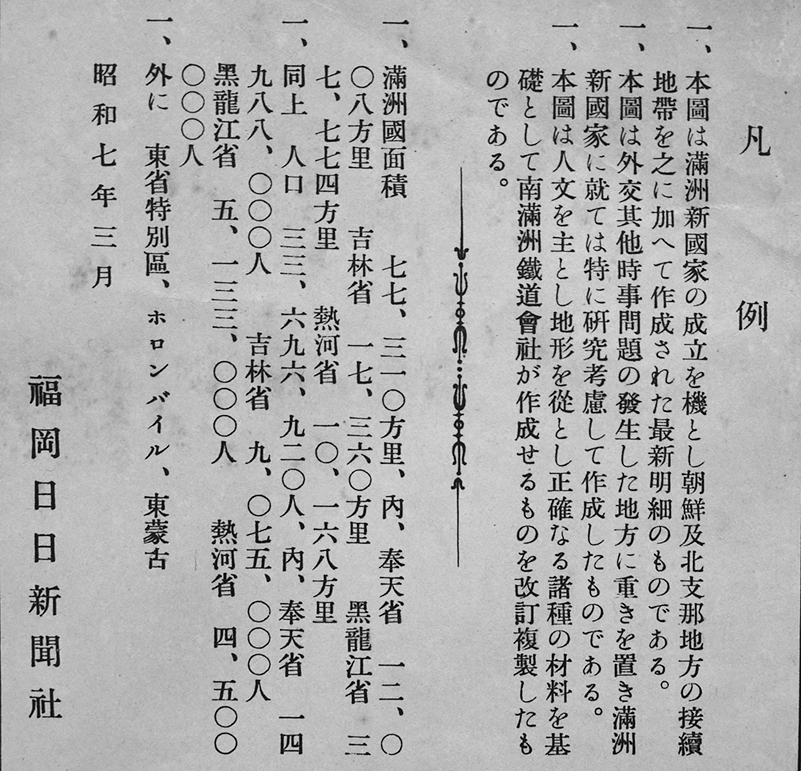 凡例
一、本圖は滿洲新國家の成立を機とし朝鮮及北支那地方の接續
地帶を之に加へて作成された最新明細のものである。
一、本圖は外交其他時事問題の發生した地方に重きを置き滿洲
新國家に就ては特に研究考慮して作成したものである。
一、本圖は人文を主とし地形を從とし正確なる諸種の材料を基
礎として南滿洲鐵道會社が作成せるものを改訂複製したも
のである。
一、滿洲國面積 七七、三一〇方里、內、奉天省 一二、〇
〇八方里 吉林省 一七、三六〇方里 黑龍江省 三
七、七七四方里 熱河省 一〇、一六八方里
一、同上 人口 三三、六九六、九二〇人、內、奉天省 一四
九八八、〇〇〇人 吉林省 九、〇七五、〇〇〇人
黑龍江省 五、一三三、〇〇〇人 熱河省 四、五〇〇
〇〇〇人
一、外に 東省特別區、ホロンバイル、東蒙古
昭和七年三月
福岡日日新聞社